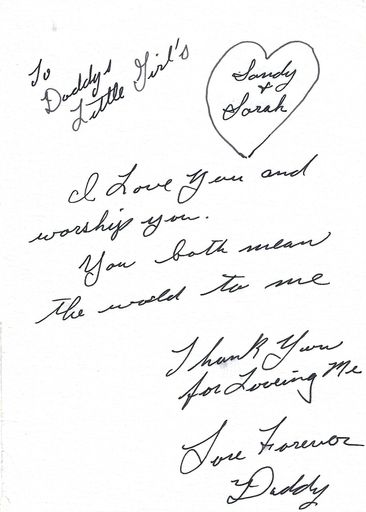 To
Daddys
Little Girl's
Sandy
+
Sarah
I Love You and
worship you.
You both mean
the world to me
Thank You
for Loveing Me
Love Forever
Daddy